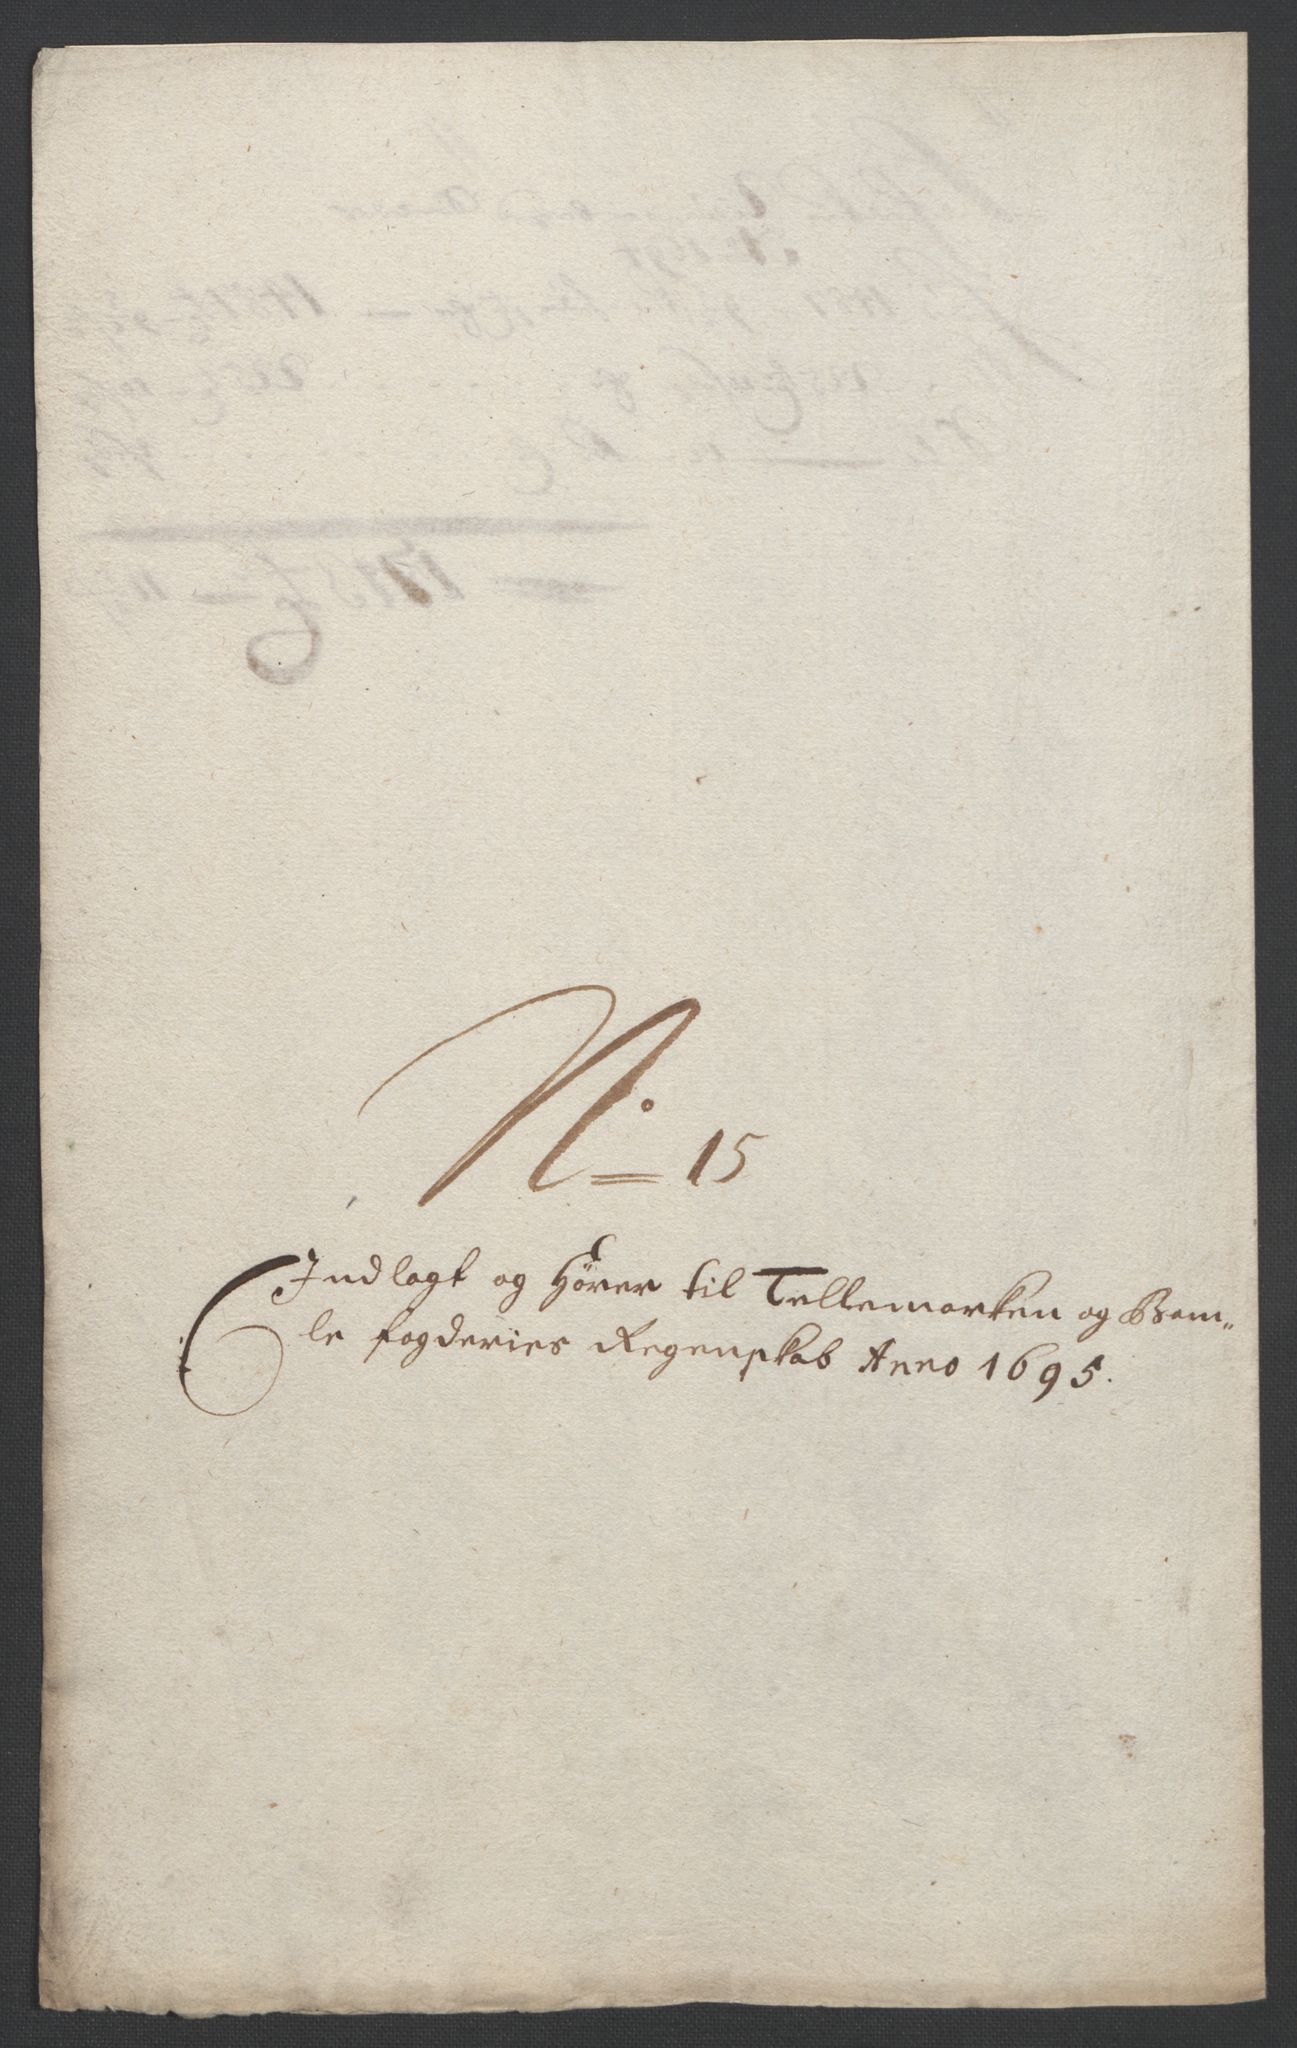 N° 15
Indlagt og Hører til Tellemarken og Bam„
le fogderies Regenskab Anno 1695.